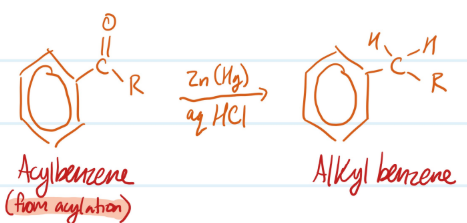 O
C
R
Zn(Hg)
aq HCl
H
H
C
R
Acylbenzene
(from acylation)
Alkyl benzene